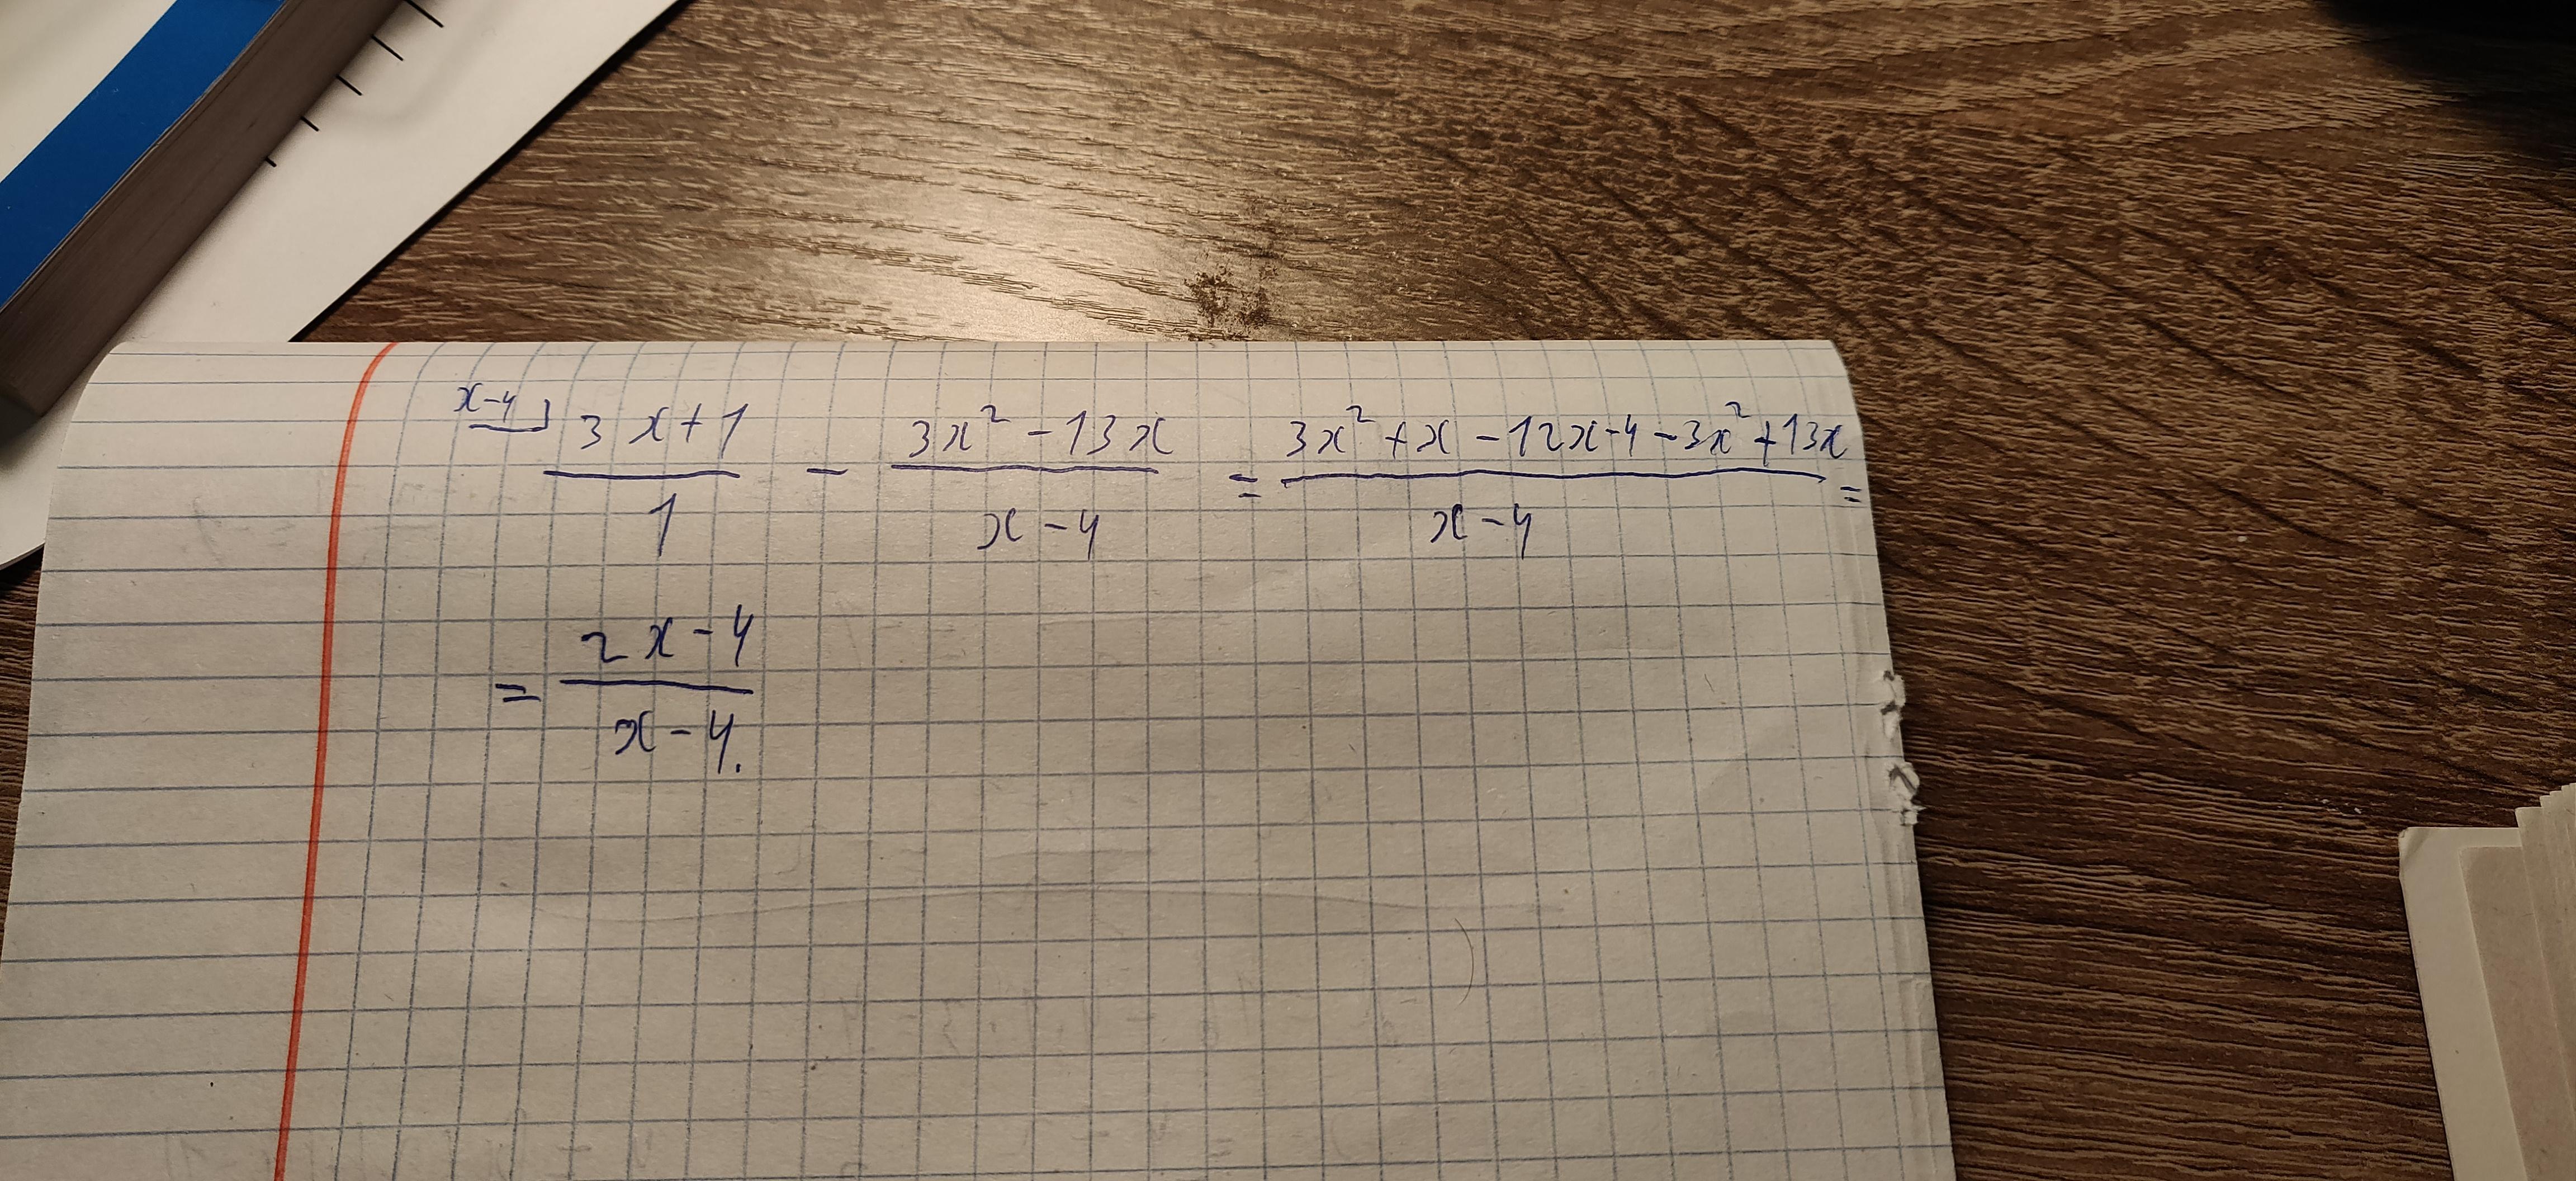 x-4⌋ (3x+1)/1 - (3x² - 13x)/(x-4) = (3x² + x - 12x - 4 - 3x² + 13x)/(x-4) =
= (2x-4)/(x-4).